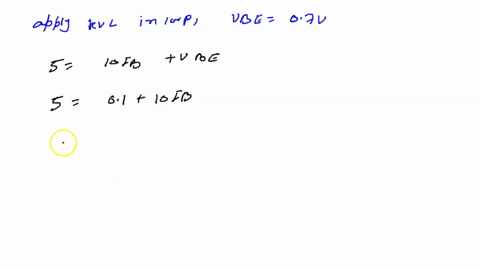 apply KVL in loop, VBE = 0.7V
5 = 10IB + VBE
5 = 0.7 + 10IB